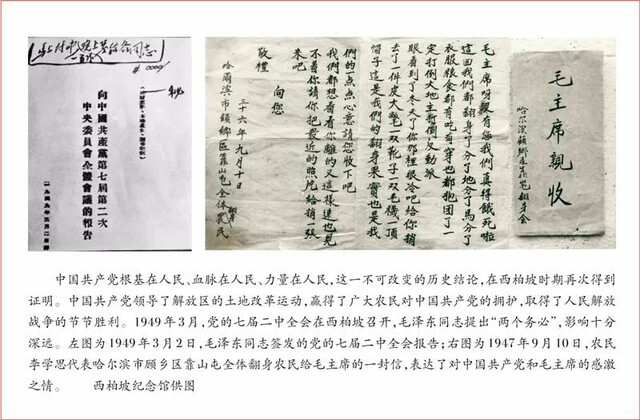 #0009
向中國共產黨第七屆第二次
中央委員會全體會議的報告
一九四九年三月二日
毛主席呀沒有您我們真得餓死啦
這回我們都翻身了分了地分了馬分了
衣服糧食都有吃有穿也都抱团了一
定打倒大地主 倒反動派
眼看到了冬天了你那裡很冷吧給你捎
去了一件皮大氅一双靴子一双毛襪一頂
帽子這是我們的翻身果實也是我
們的一点点心意請您收下吧
我們都想看看你離的又這樣遠也見
不着你請你把最近的照片给捎一張
来吧
向您
敬禮
三十六年九月十日
哈爾濱市顧鄉區靠山屯全体 農民
毛主席親收
哈尔滨顧鄉區 屯翻身会
中国共产党根基在人民、血脉在人民、力量在人民，这一不可改变的历史结论，在西柏坡时期再次得到
证明。中国共产党领导了解放区的土地改革运动，赢得了广大农民对中国共产党的拥护，取得了人民解放
战争的节节胜利。1949年3月，党的七届二中全会在西柏坡召开，毛泽东同志提出“两个务必”，影响十分
深远。左图为1949年3月2日，毛泽东同志签发的党的七届二中全会报告；右图为1947年9月10日，农民
李学思代表哈尔滨市顾乡区靠山屯全体翻身农民给毛主席的一封信，表达了对中国共产党和毛主席的感激
之情。 西柏坡纪念馆供图